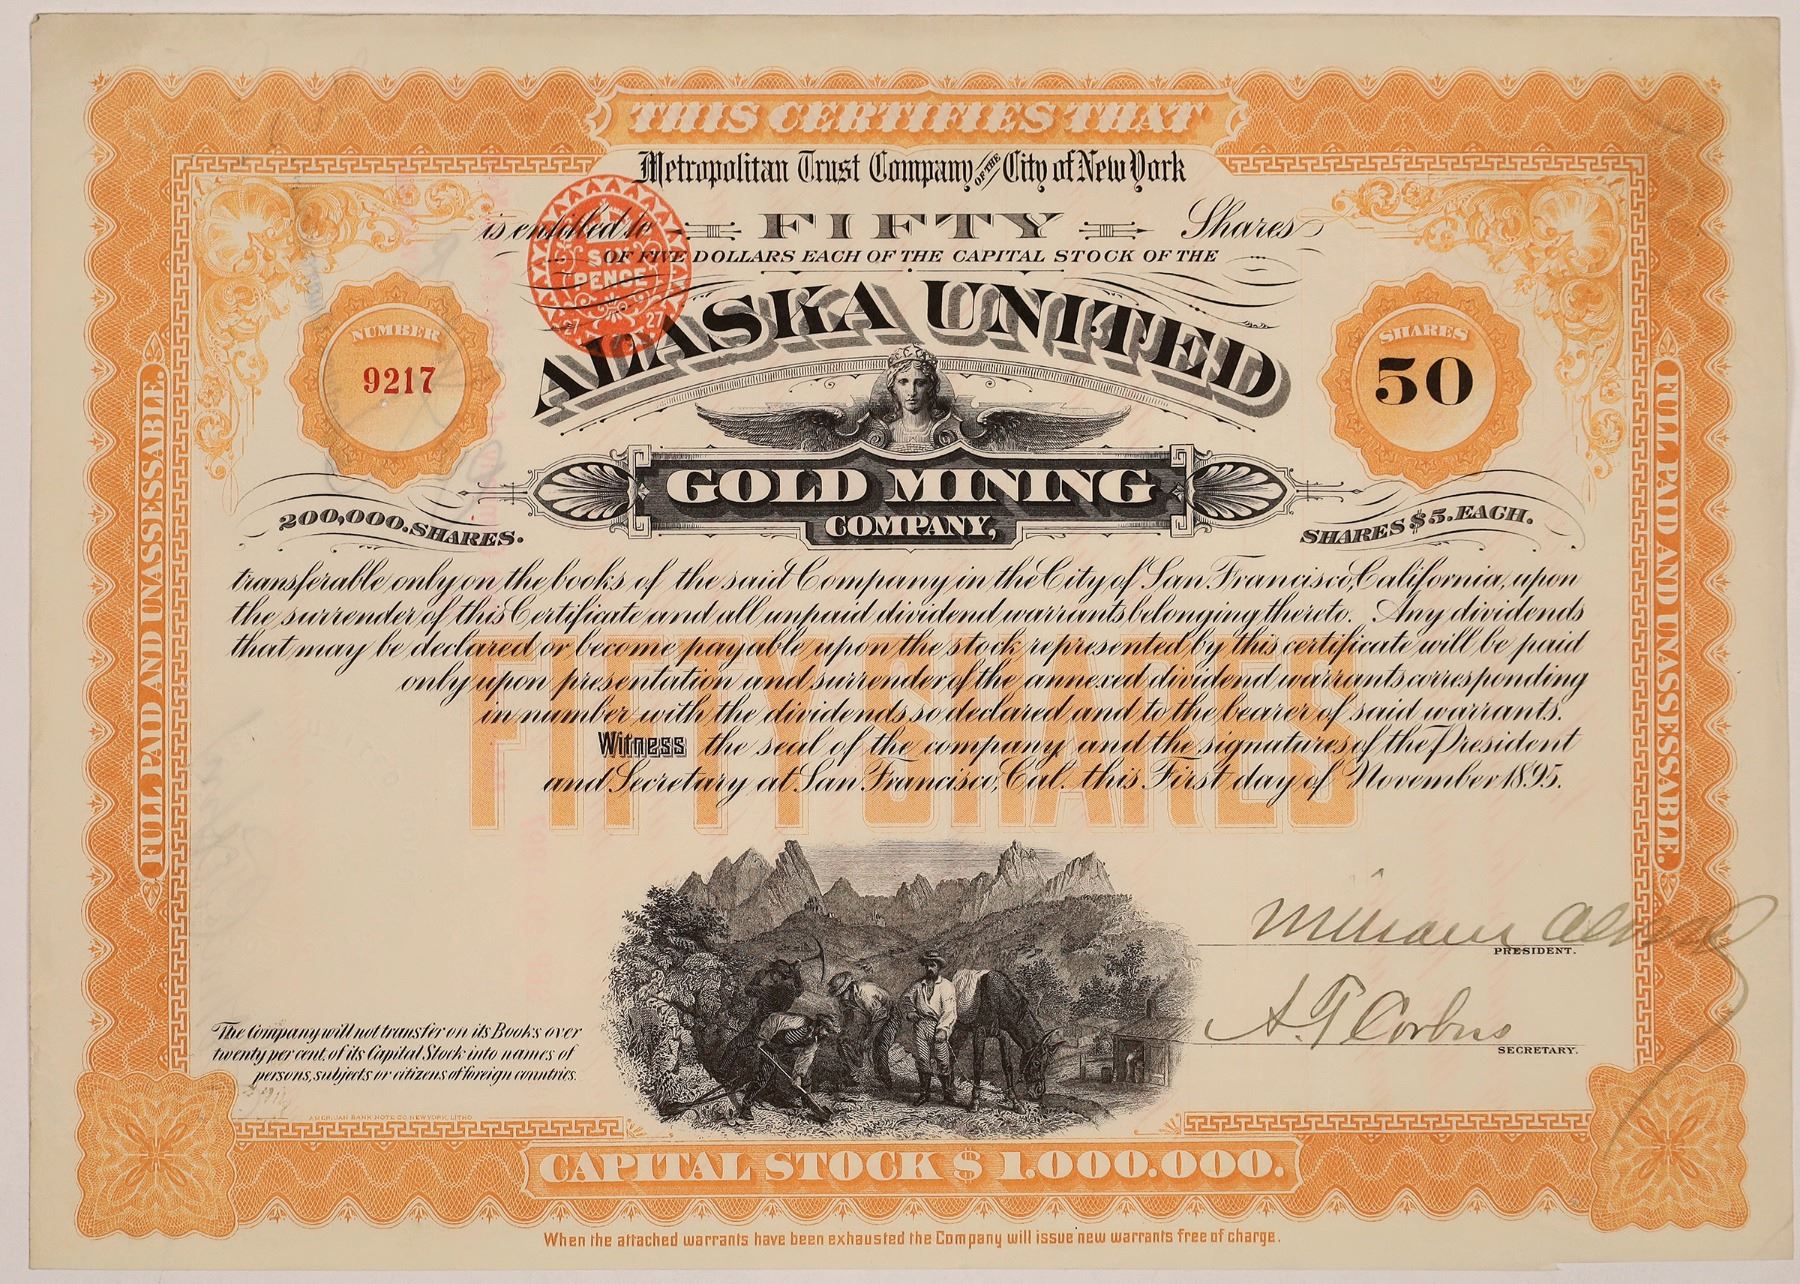 THIS CERTIFIES THAT
Metropolitan Trust Company OF THE City of New York
is entitled to FIFTY Shares
OF FIVE DOLLARS EACH OF THE CAPITAL STOCK OF THE
SIX
PENCE
27 27
ALASKA UNITED
NUMBER
9217
SHARES
50
GOLD MINING
COMPANY,
200,000. SHARES.
SHARES $5. EACH.
FULL PAID AND UNASSESSABLE.
FULL PAID AND UNASSESSABLE.
transferable only on the books of the said Company in the City of San Francisco, California, upon
the surrender of this Certificate and all unpaid dividend warrants belonging thereto. Any dividends
that may be declared or become payable upon the stock represented by this certificate will be paid
only upon presentation and surrender of the annexed dividend warrants corresponding
in number with the dividends so declared and to the bearer of said warrants.
Witness the seal of the company and the signatures of the President
and Secretary at San Francisco, Cal. this First day of November 1895.
FIFTY SHARES
William Alvord
PRESIDENT.
A. T. Corbus
SECRETARY.
The Company will not transfer on its Books over
twenty per cent. of its Capital Stock into names of
persons, subjects or citizens of foreign countries.
AMERICAN BANK NOTE CO. NEW YORK, LITHO
CAPITAL STOCK $1.000.000.
When the attached warrants have been exhausted the Company will issue new warrants free of charge.